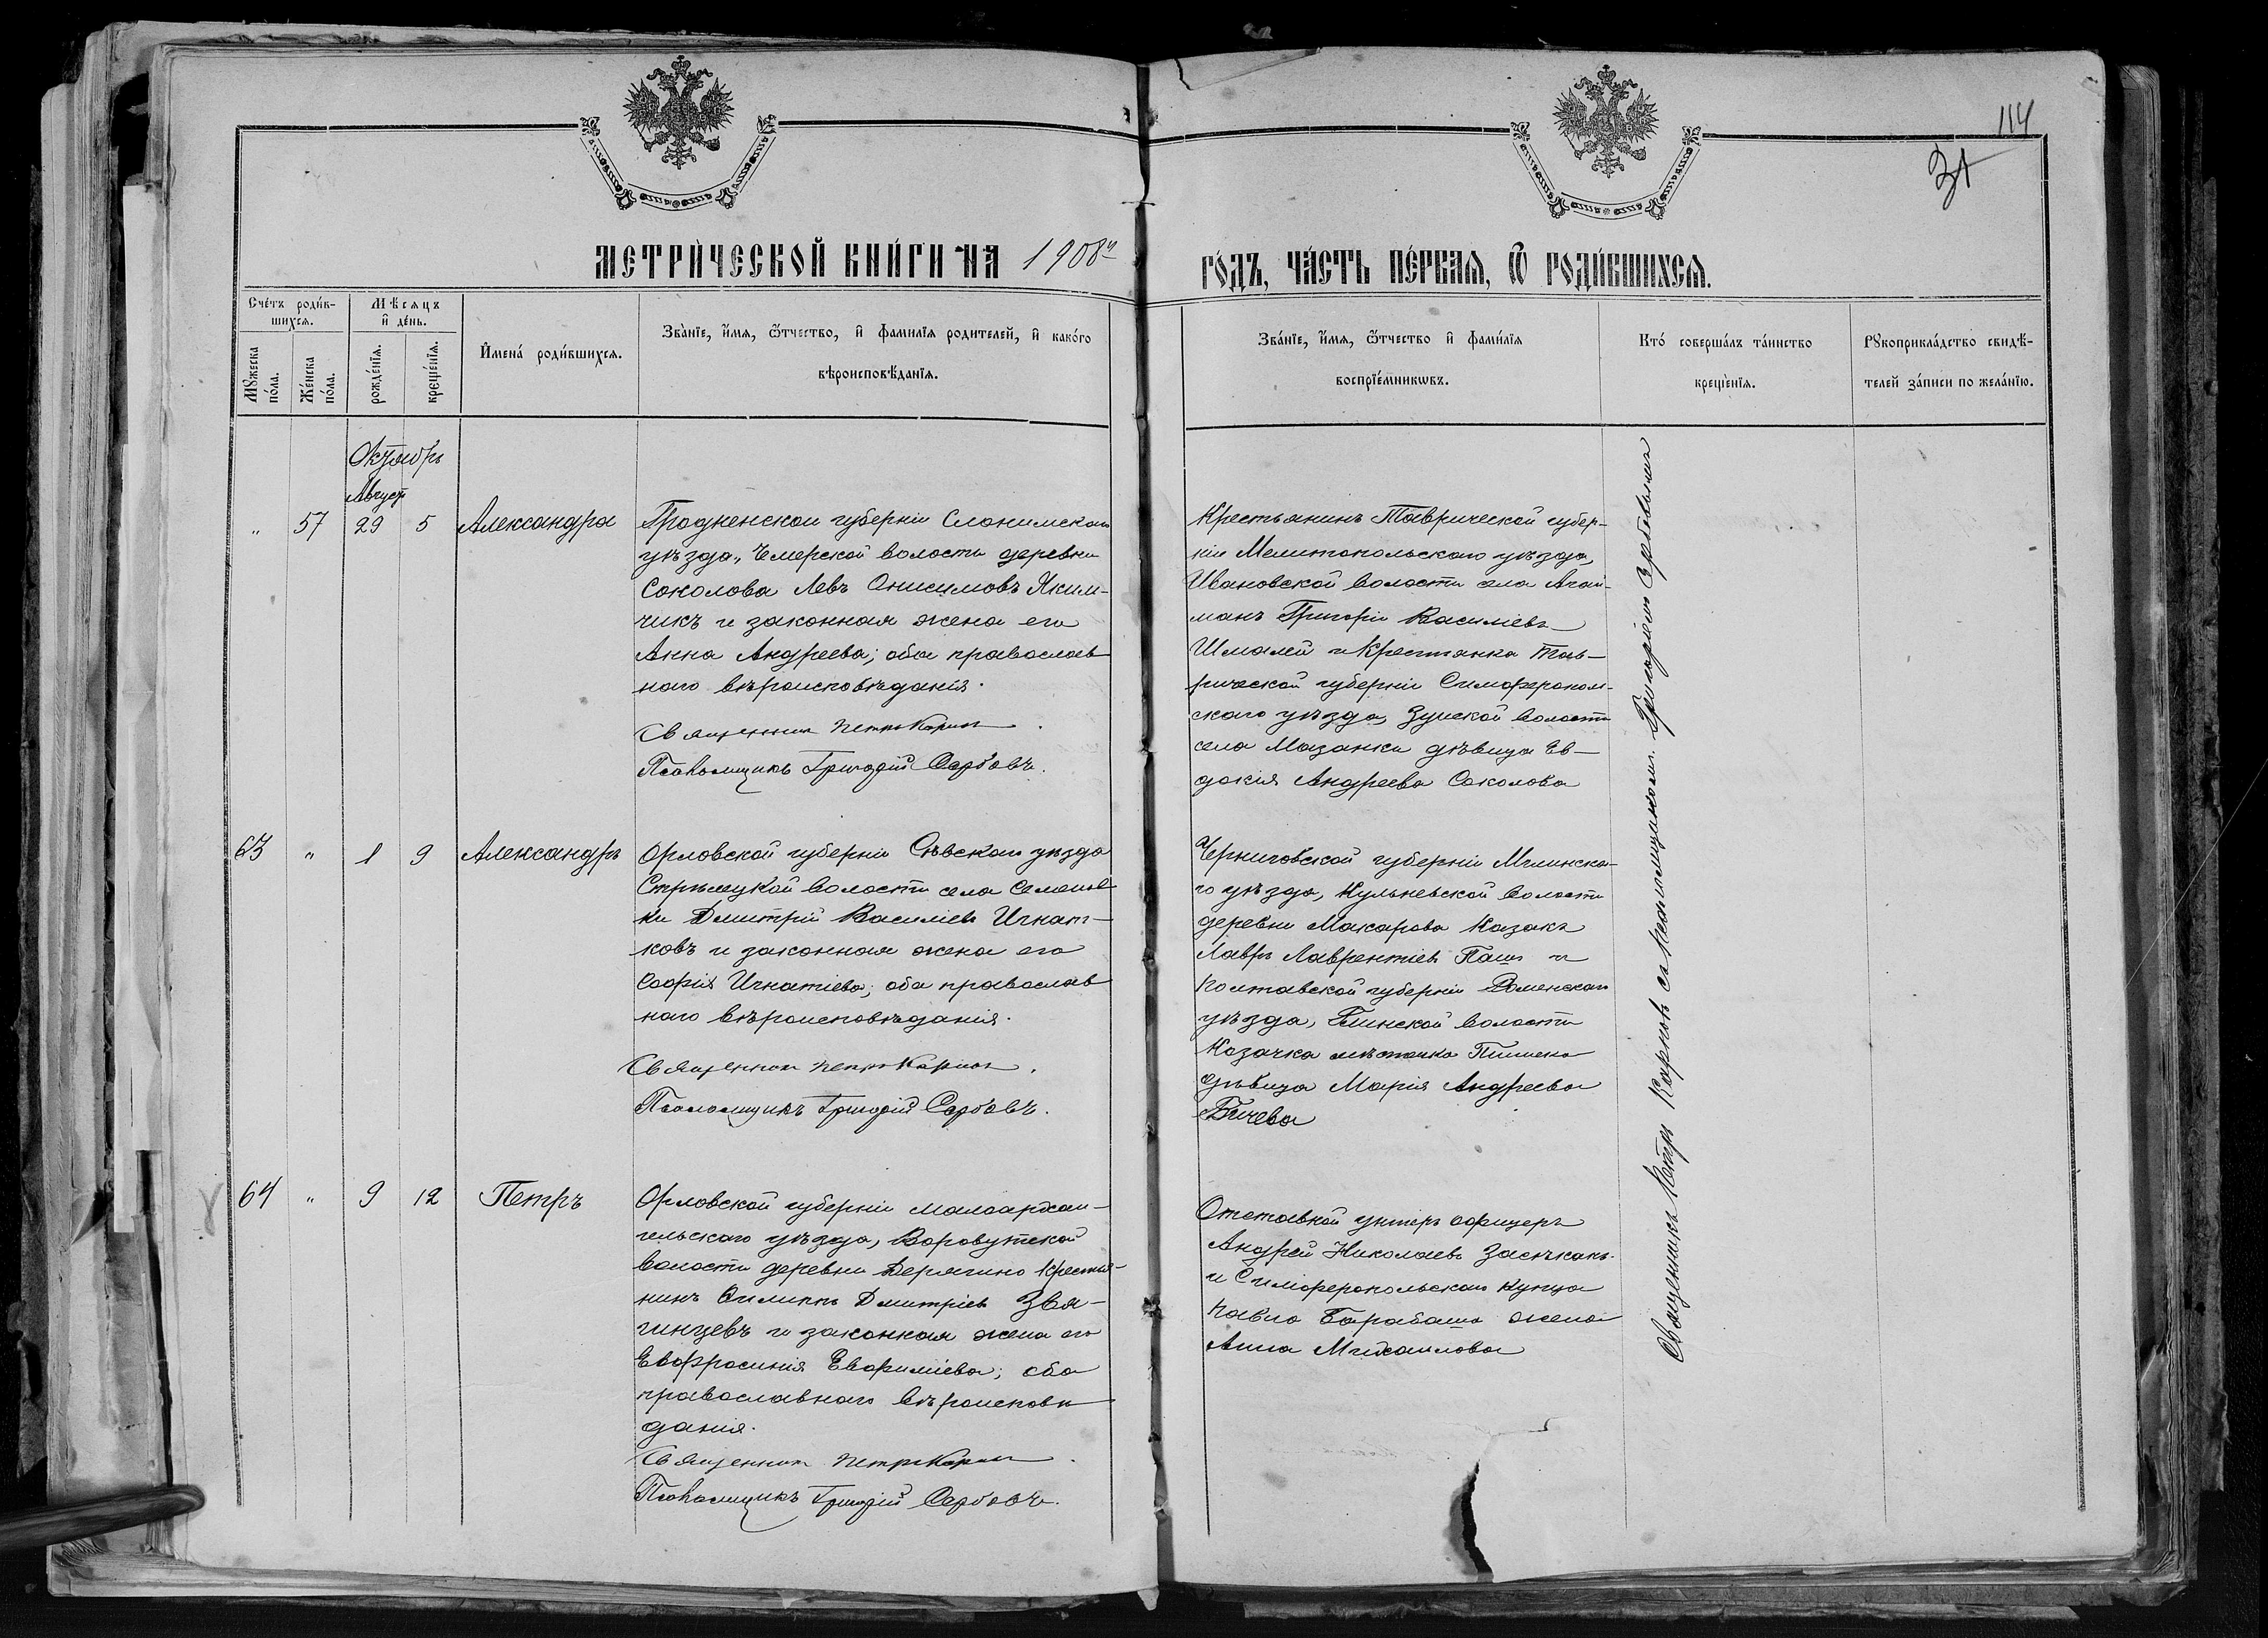 114
31
МЕТРИЧЕСКОЙ КНИГИ НА 1908й
ГОДЪ, ЧАСТЬ ПЕРВАЯ, Ѿ РОДИВШИХСЯ.
Счетъ родив-
шихся.
Мѣсяцъ
и день.
Мужеска
пола.
Женска
пола.
рожденія.
крещенія.
Имена родившихся.
Званіе, имя, ѿтчество, и фамилія родителей, и какого
вѣроисповѣданія.
Званіе, имя, ѿтчество и фамилія
воспріемниковъ.
Кто совершалъ таинство
крещенія.
Рукоприкладство свидѣ-
телей записи по желанію.
Октябрь
Август
„ 57 29 5 Александра
Гродненской губерніи Слонимскаго
уѣзда, Чемерской волости деревни
Соколова Левъ Онисимовъ Яким-
чикъ и законная жена его
Анна Андреева; оба православ
наго вѣроисповѣданія.
Священникъ Петръ Карповъ
Псаломщикъ Григорій Сербовъ.
Крестьянинъ Таврической губер-
ніи Мелитопольскаго уѣзда,
Ивановской волости села Агай-
манъ Григорій Василіевъ
Шмалей и Крестьянка Тав-
рической губерніи Симферополь-
скаго уѣзда, Зуйской волости
села Мазанки дѣвица Ев-
докія Андреева Соколова
63 „ 1 9 Александръ
Орловской губерніи Сѣвскаго уѣзда
Стрѣлецкой волости села Семенов
ки Дмитрій Василіевъ Игнат-
ковъ и законная жена его
Софія Игнатіева; оба православ
наго вѣроисповѣданія.
Священникъ Петръ Карповъ.
Псаломщикъ Григорій Сербовъ.
Черниговской губерніи Мглинска-
го уѣзда, Кульневской волости
деревни Макарова Казакъ
Лавръ Лаврентіевъ Пашъ и
Полтавской губерніи Роменскаго
уѣзда, Глинской волости
Козачка мѣстечка
дѣвица Марія Андреева
Бичева
64 „ 9 12 Петръ
Орловской губерніи Малоархан-
гельскаго уѣзда,
волости деревни Дерягино Крестья-
нинъ Филиппъ Дмитріевъ Звя-
гинцевъ и законная жена его
Евфросинія Евфиміева; оба
православнаго вѣроисповѣ
данія.
Священникъ Петръ Карповъ.
Псаломщикъ Григорій Сербовъ.
Отставной унтеръ офицеръ
Андрей Николаевъ
и Симферопольскаго Купца
Павла Барабаша жена
Анна Михаилова
Священникъ Петръ Карповъ съ псаломщикомъ Григоріемъ Сербовымъ